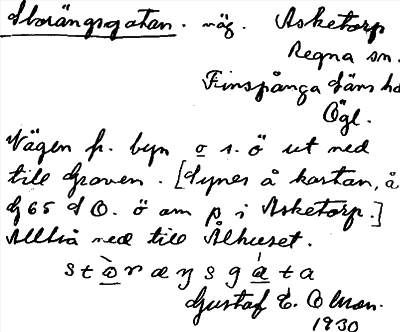 Storängsgatan. väg. Asketorp
Regna sn.
Finspånga läns hd
Ögl.
Vägen fr. byn o s. ö ut ned
till Graven. [Synes å kartan, å
G65 d O. ö om p i Asketorp.]
Alltså ned till Ålhuset.
Gustaf E. Olson.
1930